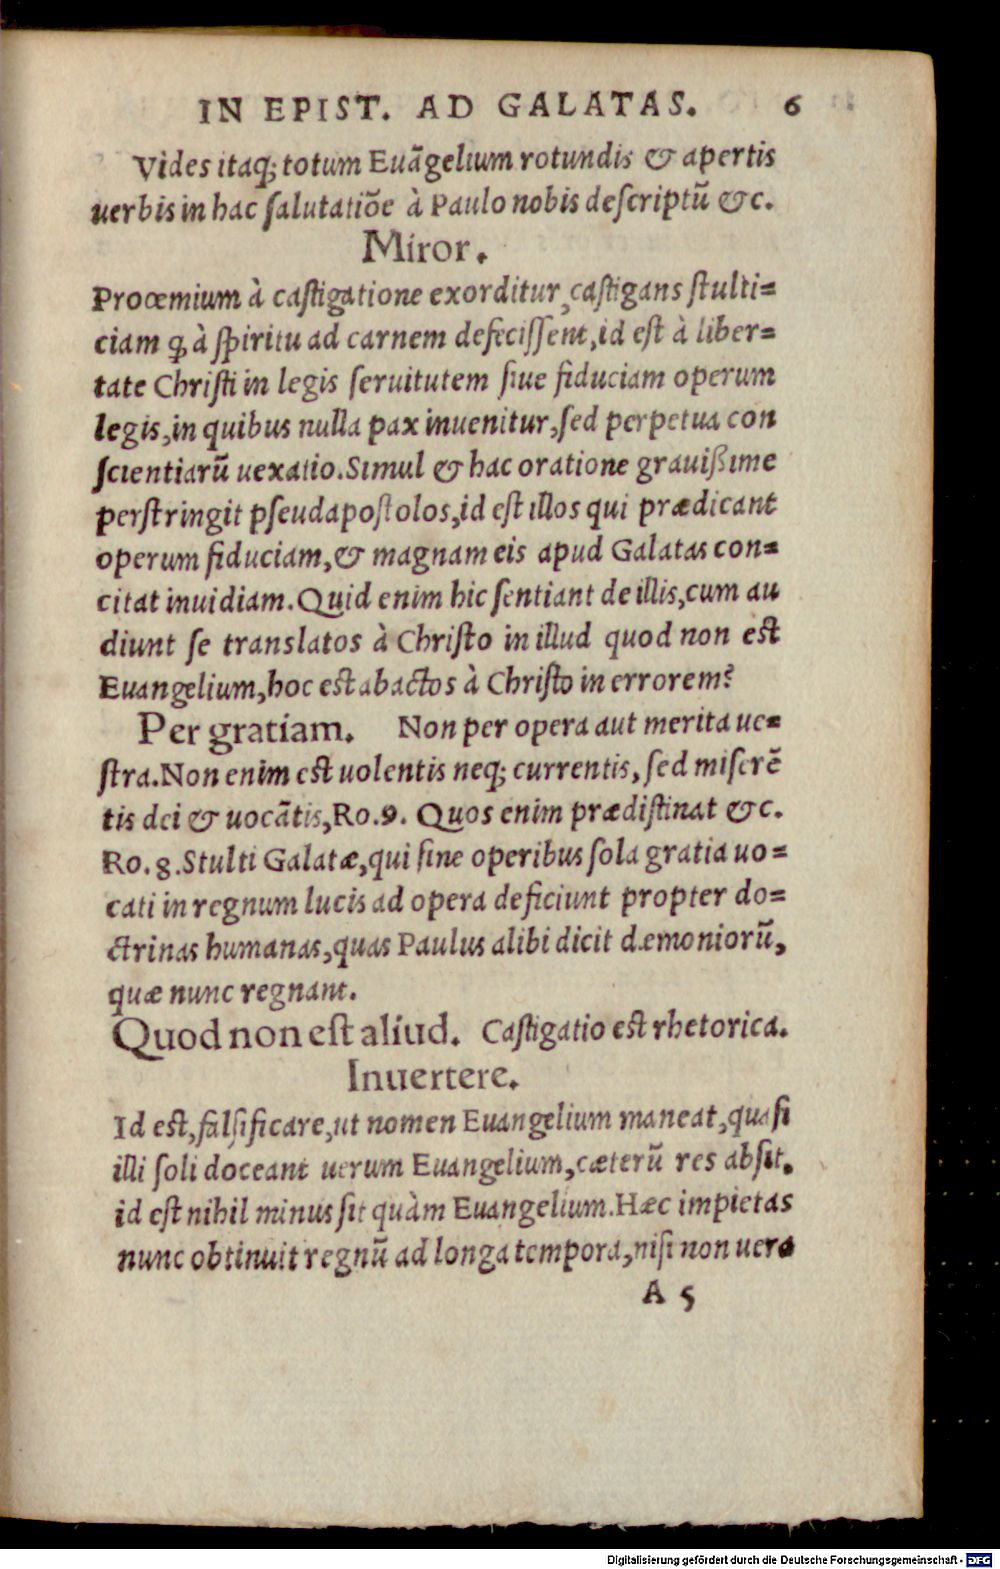 IN EPIST. AD GALATAS. 6
Vides itaq; totum Euãgelium rotundis & apertis
uerbis in hac ſalutatiõe à Paulo nobis deſcriptũ &c.
Miror.
Proœmium à caſtigatione exorditur, caſtigans ſtulti=
ciam ꝙ à ſpiritu ad carnem defeciſſent, id eſt à liber=
tate Chriſti in legis ſeruitutem ſiue fiduciam operum
legis, in quibus nulla pax inuenitur, ſed perpetua con
ſcientiarũ uexatio. Simul & hac oratione grauißime
perſtringit pſeudapoſtolos, id eſt illos qui prædicant
operum fiduciam, & magnam eis apud Galatas con=
citat inuidiam. Quid enim hic ſentiant de illis, cum au
diunt ſe translatos à Chriſto in illud quod non eſt
Euangelium, hoc eſt abactos à Chriſto in errorem?
Per gratiam. Non per opera aut merita ue=
ſtra. Non enim eſt uolentis neq; currentis, ſed miſerẽ
tis dei & uocãtis, Ro.9. Quos enim prædiſtinat &c.
Ro.8. Stulti Galatæ, qui ſine operibus ſola gratia uo=
cati in regnum lucis ad opera deficiunt propter do=
ctrinas humanas, quas Paulus alibi dicit dæmoniorũ,
quæ nunc regnant.
Quod non eſt aliud. Caſtigatio eſt rhetorica.
Inuertere.
Id eſt, falſificare, ut nomen Euangelium maneat, quaſi
illi ſoli doceant uerum Euangelium, cæterũ res abſit.
id eſt nihil minus ſit quàm Euangelium. Hæc impietas
nunc obtinuit regnũ ad longa tempora, niſi non uera
A 5
Digitalisierung gefördert durch die Deutsche Forschungsgemeinschaft - DFG